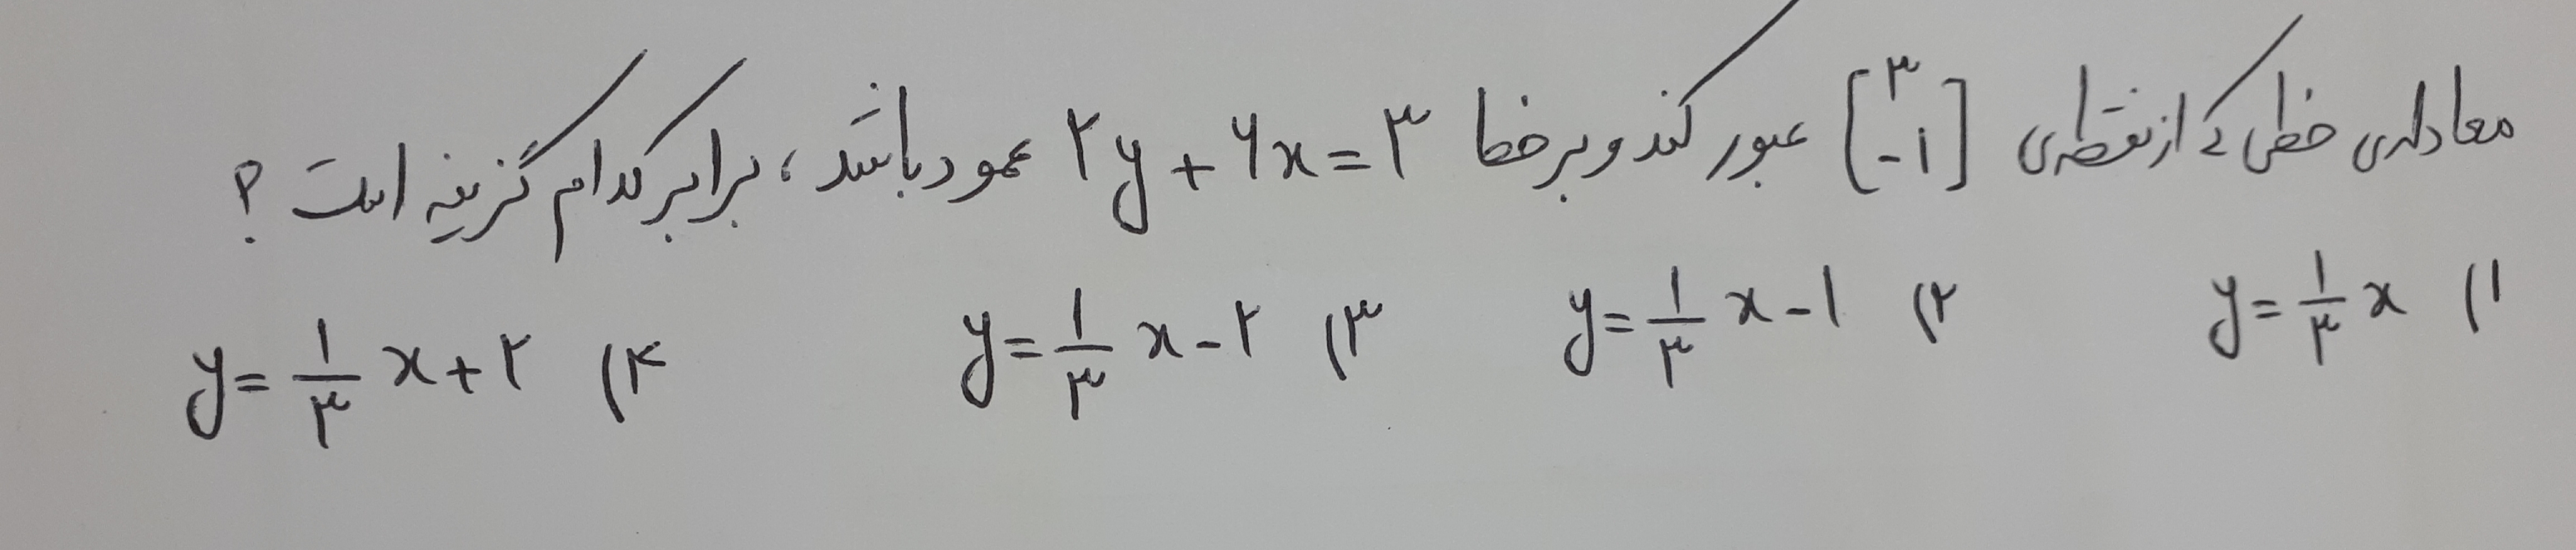 معادله‌ی خطی که از نقطه‌ی [۳ -۱] عبور کند و بر خط ۲y + ۶x = ۳ عمود باشد، برابر کدام گزینه است؟
۱) y = ۱/۳ x ۲) y = ۱/۳ x - ۱ ۳) y = ۱/۳ x - ۲ ۴) y = ۱/۳ x + ۲